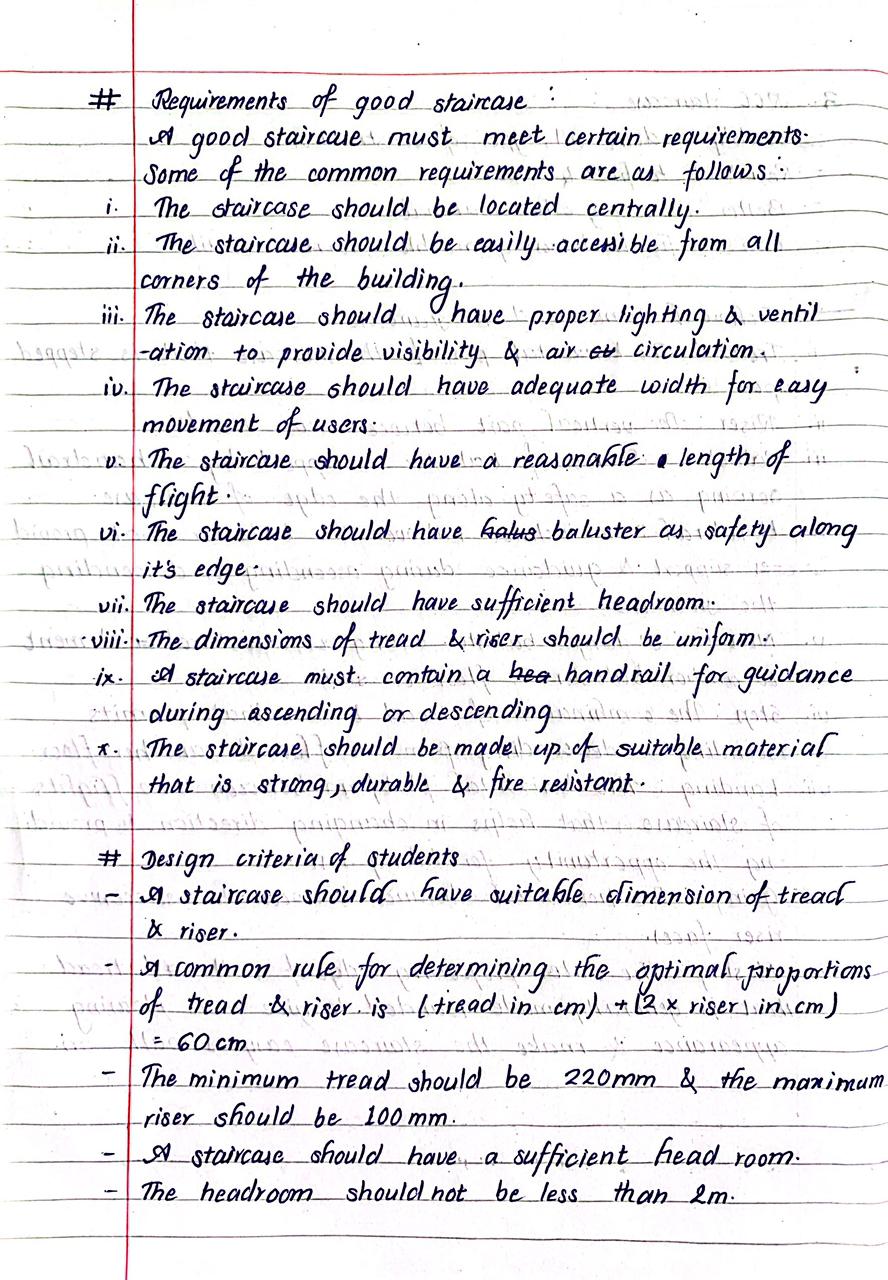 # Requirements of good staircase :
A good staircase must meet certain requirements.
Some of the common requirements are as follows :
i. The staircase should be located centrally.
ii. The staircase should be easily accessible from all
corners of the building.
iii. The staircase should have proper lighting & ventil
-ation to provide visibility & air circulation.
iv. The staircase should have adequate width for easy
movement of users.
v. The staircase should have a reasonable length of
flight.
vi. The staircase should have balus baluster as safety along
it's edge.
vii. The staircase should have sufficient headroom.
viii. The dimensions of tread & riser should be uniform.
ix. A staircase must contain a hea handrail for guidance
during ascending or descending
x. The staircase should be made up of suitable material
that is strong, durable & fire resistant.
# Design criteria of students
- A staircase should have suitable dimension of tread
& riser.
- A common rule for determining the optimal proportions
of tread & riser is (tread in cm) + (2 x riser in cm)
= 60 cm
- The minimum tread should be 220mm & the maximum
riser should be 100 mm.
- A staircase should have a sufficient head room.
- The headroom should not be less than 2m.